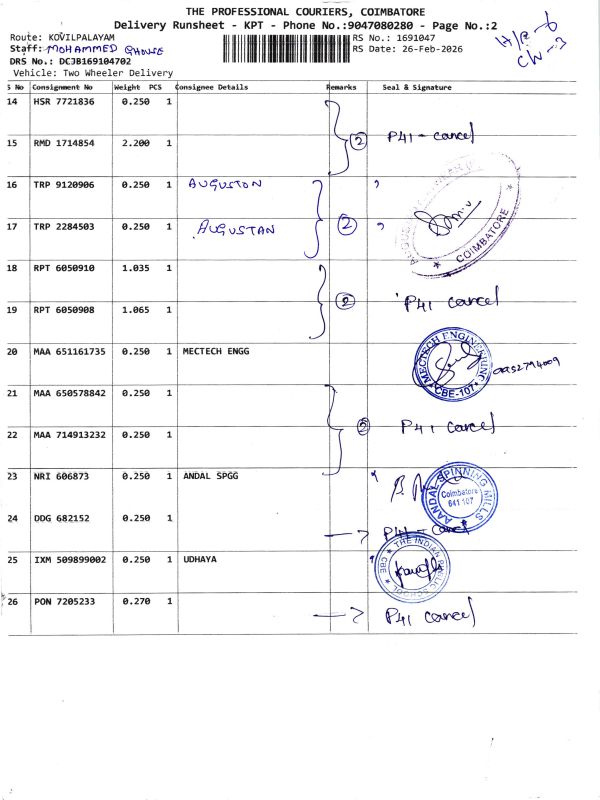 THE PROFESSIONAL COURIERS, COIMBATORE
Delivery Runsheet - KPT - Phone No.:9047080280 - Page No.:2
Route: KOVILPALAYAM
RS No.: 1691047
Staff: MOHAMMED GHOUSE
RS Date: 26-Feb-2026
DRS No.: DCJB169104702
Vehicle: Two Wheeler Delivery
S No Consignment No Weight PCS Consignee Details Remarks Seal & Signature
14 HSR 7721836 0.250 1
2 P41 - cancel
15 RMD 1714854 2.200 1
16 TRP 9120906 0.250 1 AUGUSTON
2
17 TRP 2284503 0.250 1 AUGUSTAN
COIMBATORE
18 RPT 6050910 1.035 1
2 P41 cancel
19 RPT 6050908 1.065 1
20 MAA 651161735 0.250 1 MECTECH ENGG
MECTECH ENGINEERING
CBE-107
21 MAA 650578842 0.250 1
2 P41 cancel
22 MAA 714913232 0.250 1
23 NRI 606873 0.250 1 ANDAL SPGG
AANDAL SPINNING MILLS
Coimbatore
641 107
24 DDG 682152 0.250 1
P41 - cancel
25 IXM 509899002 0.250 1 UDHAYA
THE INDIAN PUBLIC SCHOOL
CBE
26 PON 7205233 0.270 1
P41 cancel